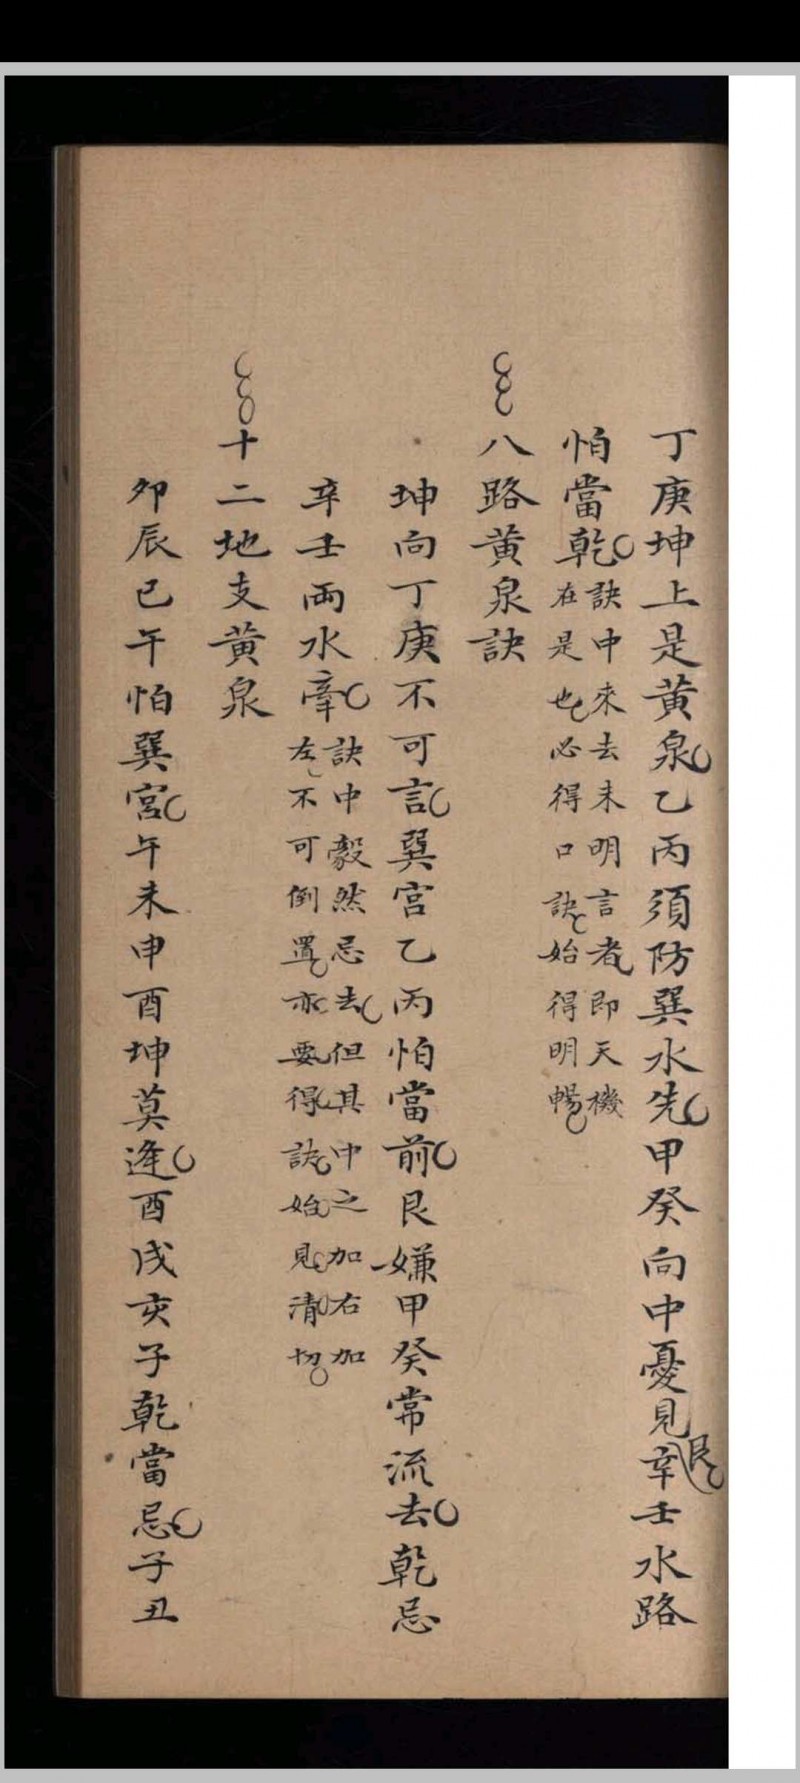 丁庚坤上是黃泉乙丙須防巽水先甲癸向中憂見艮辛壬水路
怕當乾訣中來去未明言者即天機
在是也必得口訣始得明暢
八路黃泉訣
坤向丁庚不可言巽宮乙丙怕當前艮嫌甲癸常流去乾忌
辛壬兩水牽訣中毅然忌去但其中之加右加
左不可倒置亦要得訣始見清切
十二地支黃泉
卯辰巳午怕巽宮午未申酉坤莫逢酉戌亥子乾當忌子丑